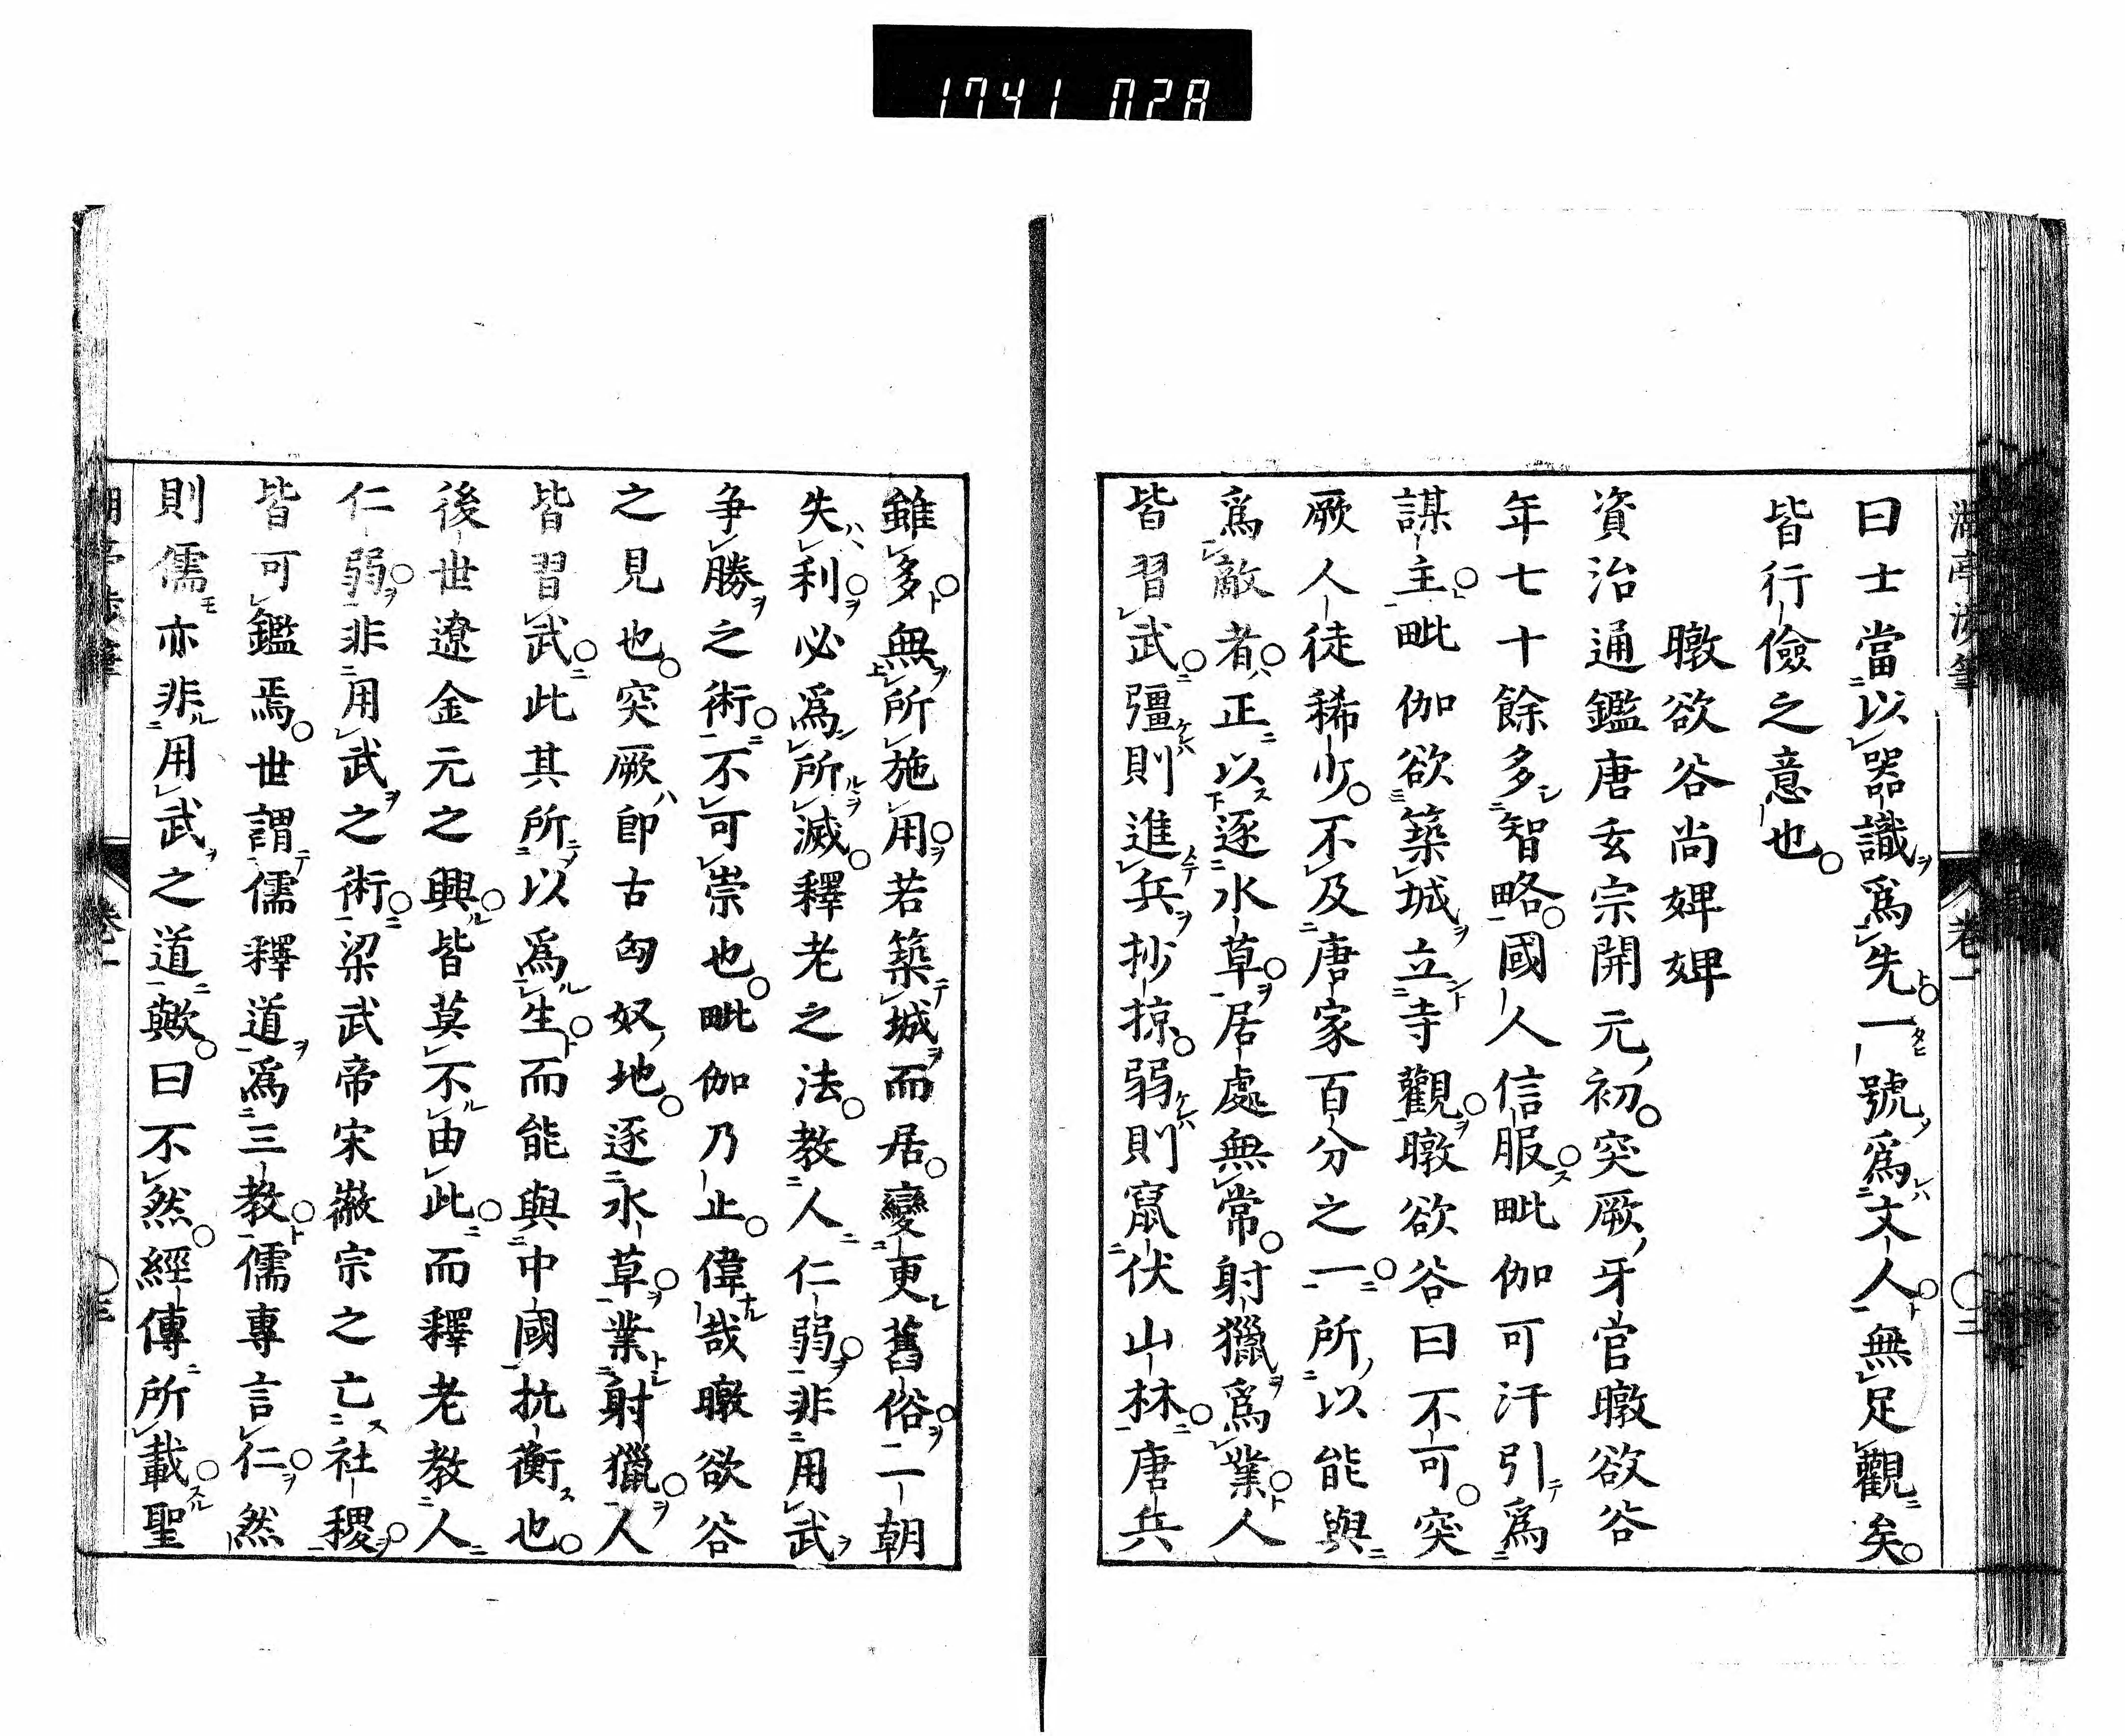 1741 028
曰士當以器識爲先一號爲文人無足觀矣
皆行儉之意也
暾欲谷尚婢婢
資治通鑑唐玄宗開元初突厥牙官暾欲谷
年七十餘多智略國人信服毗伽可汗引爲
謀主毗伽欲築城立寺觀暾欲谷曰不可突
厥人徒稀少不及唐家百分之一所以能與
爲敵者正以逐水草居處無常射獵爲業人
皆習武彊則進兵抄掠弱則竄伏山林唐兵
雖多無所施用若築城而居變更舊俗一朝
失利必爲所滅釋老之法教人仁弱非用武
争勝之術不可崇也毗伽乃止偉哉暾欲谷
之見也突厥即古匈奴地逐水草業射獵人
皆習武此其所以爲生而能與中國抗衡也
後世遼金元之興皆莫不由此而釋老教人
仁弱非用武之術梁武帝宋徽宗之亡社稷
皆可鑑焉世謂儒釋道爲三教儒專言仁然
則儒亦非用武之道歟曰不然經傳所載聖